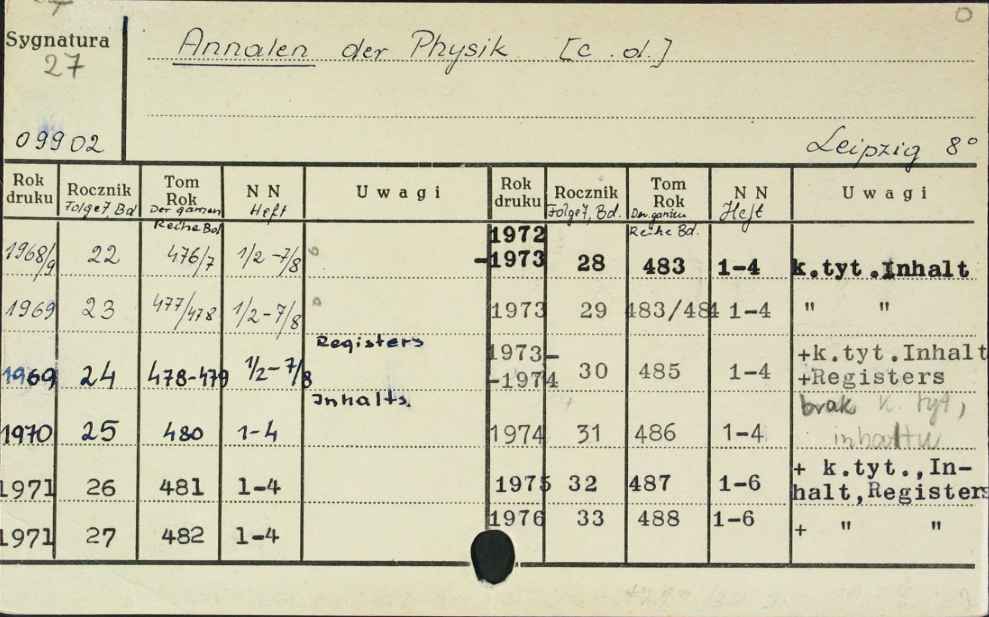 Sygnatura
27
09902
Annalen der Physik [c.d.]
Leipzig 8°
Rok druku
Rocznik Folge 7, Bd
Tom Rok Der ganzen Reihe Bd
NN Heft
Uwagi
Rok druku
Rocznik Folge 7, Bd.
Tom Rok Der ganzen Reihe Bd.
NN Heft
Uwagi
1968/9 22 476/7 1/2-7/8
1969 23 477/478 1/2-7/8
1969 24 478-479 1/2-7/8 Registers Inhalts
1970 25 480 1-4
1971 26 481 1-4
1971 27 482 1-4
1972-1973 28 483 1-4 k.tyt.Inhalt
1973 29 483/484 1-4 " "
1973-
-1974 30 485 1-4 +k.tyt.Inhalt
+Registers
1974 31 486 1-4 brak k. tyt,
inhaltu
1975 32 487 1-6 + k.tyt.,In-
halt,Registers
1976 33 488 1-6 + " "